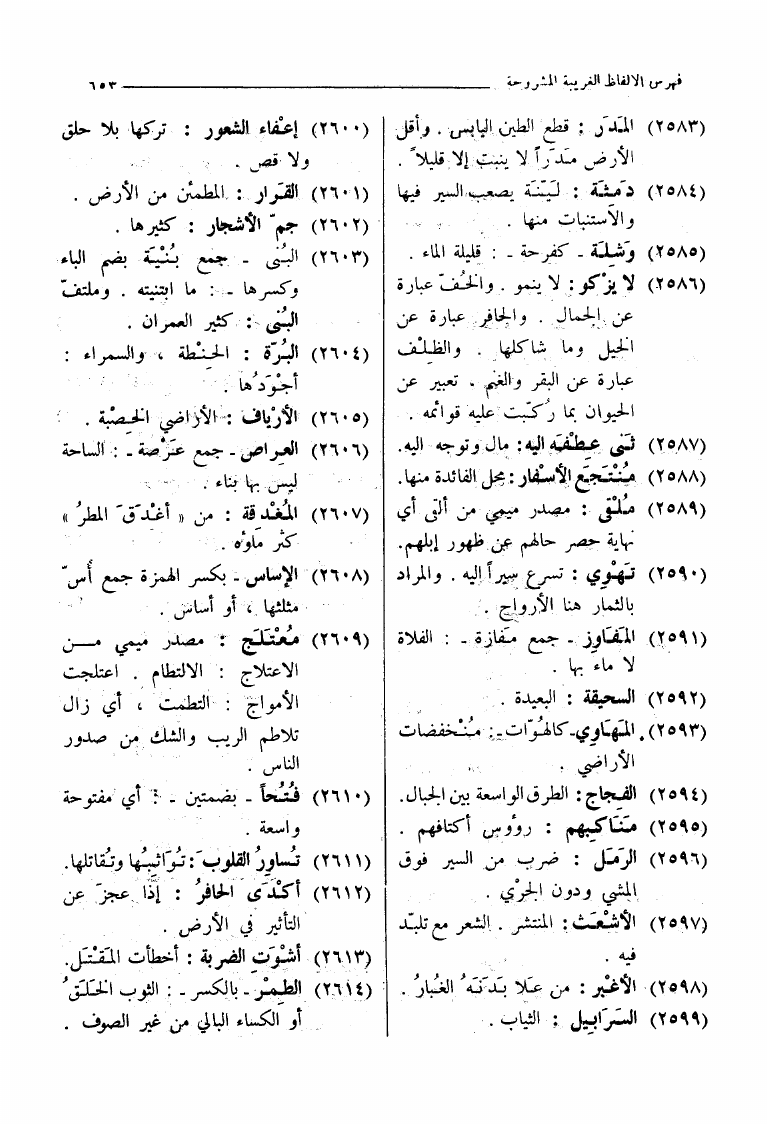 فهرس الالفاظ الغريبة المشروحة ٦٥٣
(٢٥٨٣) المَدَر : قطع الطين اليابس . وأقل
الأرض مَدَراً لا ينبت إلا قليلاً .
(٢٥٨٤) دَمْثَة : لَيّنَة يصعب السير فيها
والاستنبات منها .
(٢٥٨٥) وَشِلَة - كفرحة - : قليلة الماء .
(٢٥٨٦) لا يَزْكو : لا ينمو . والخُفّ عبارة
عن الجمال . والحافر عبارة عن
الخيل وما شاكلها . والظِلْف
عبارة عن البقر والغنم ، تعبير عن
الحيوان بما رُكّبت عليه قوائمه .
(٢٥٨٧) ثَنى عِطْفَه اليه : مال وتوجه اليه .
(٢٥٨٨) مُنْتَجَع الأسْفار : محل الفائدة منها .
(٢٥٨٩) مُلْقى : مصدر ميمي من ألقى أي
نهاية حصر حالهم عن ظهور إبلهم .
(٢٥٩٠) تَهْوي : تسرع سيراً إليه . والمراد
بالثمار هنا الأرواح .
(٢٥٩١) المَفَاوز - جمع مَفازة - : الفلاة
لا ماء بها .
(٢٥٩٢) السحيقة : البعيدة .
(٢٥٩٣) المَهَاوي - كالهُوّات - : مُنْخفضات
الأراضي .
(٢٥٩٤) الفِجاج : الطرق الواسعة بين الجبال .
(٢٥٩٥) مَنَاكِبهم : رؤوس أكتافهم .
(٢٥٩٦) الرَمَل : ضرب من السير فوق
المشي ودون الجَرْي .
(٢٥٩٧) الأشْعَث : المنتشر . الشعر مع تلبّد
فيه .
(٢٥٩٨) الأغْبر : من عَلا بَدَنَهُ الغُبارُ .
(٢٥٩٩) السَرَابيل : الثياب .
(٢٦٠٠) إعْفاء الشعور : تركها بلا حلق
ولا قص .
(٢٦٠١) القَرار : المطمئن من الأرض .
(٢٦٠٢) جمّ الأشجار : كثيرها .
(٢٦٠٣) البُنى - جمع بُنْيَة بضم الباء
وكسرها - : ما ابتنيته . وملتفّ
البُنى : كثير العمران .
(٢٦٠٤) البُرّة : الحِنطة ، والسمراء :
أجْوَدُها .
(٢٦٠٥) الأرْياف : الأراضي الخِصبْة .
(٢٦٠٦) العِراص - جمع عَرْصة - : الساحة
ليس بها بناء .
(٢٦٠٧) المُغْدقة : من « أغْدَقَ المطرُ »
كثر ماؤه .
(٢٦٠٨) الإساس - بكسر الهمزة جمع أُسّ
مثلثها ، أو أساس .
(٢٦٠٩) مُعْتَلَج : مصدر ميمي مــن
الاعتلاج : الالتطام . اعتلجت
الأمواج : التطمت ، أي زال
تلاطم الريب والشك من صدور
الناس .
(٢٦١٠) فُتُحاً - بضمتين - : أي مفتوحة
واسعة .
(٢٦١١) تُساورُ القلوبَ : تُوَاثِبُها وتُقاتلها .
(٢٦١٢) أكْدَى الحافرُ : إذا عجزَ عن
التأثير في الأرض .
(٢٦١٣) أشْوَتِ الضربة : أخطأت المَقْتَل .
(٢٦١٤) الطِمْر - بالكسر - : الثوب الخَلَقُ
أو الكساء البالي من غير الصوف .